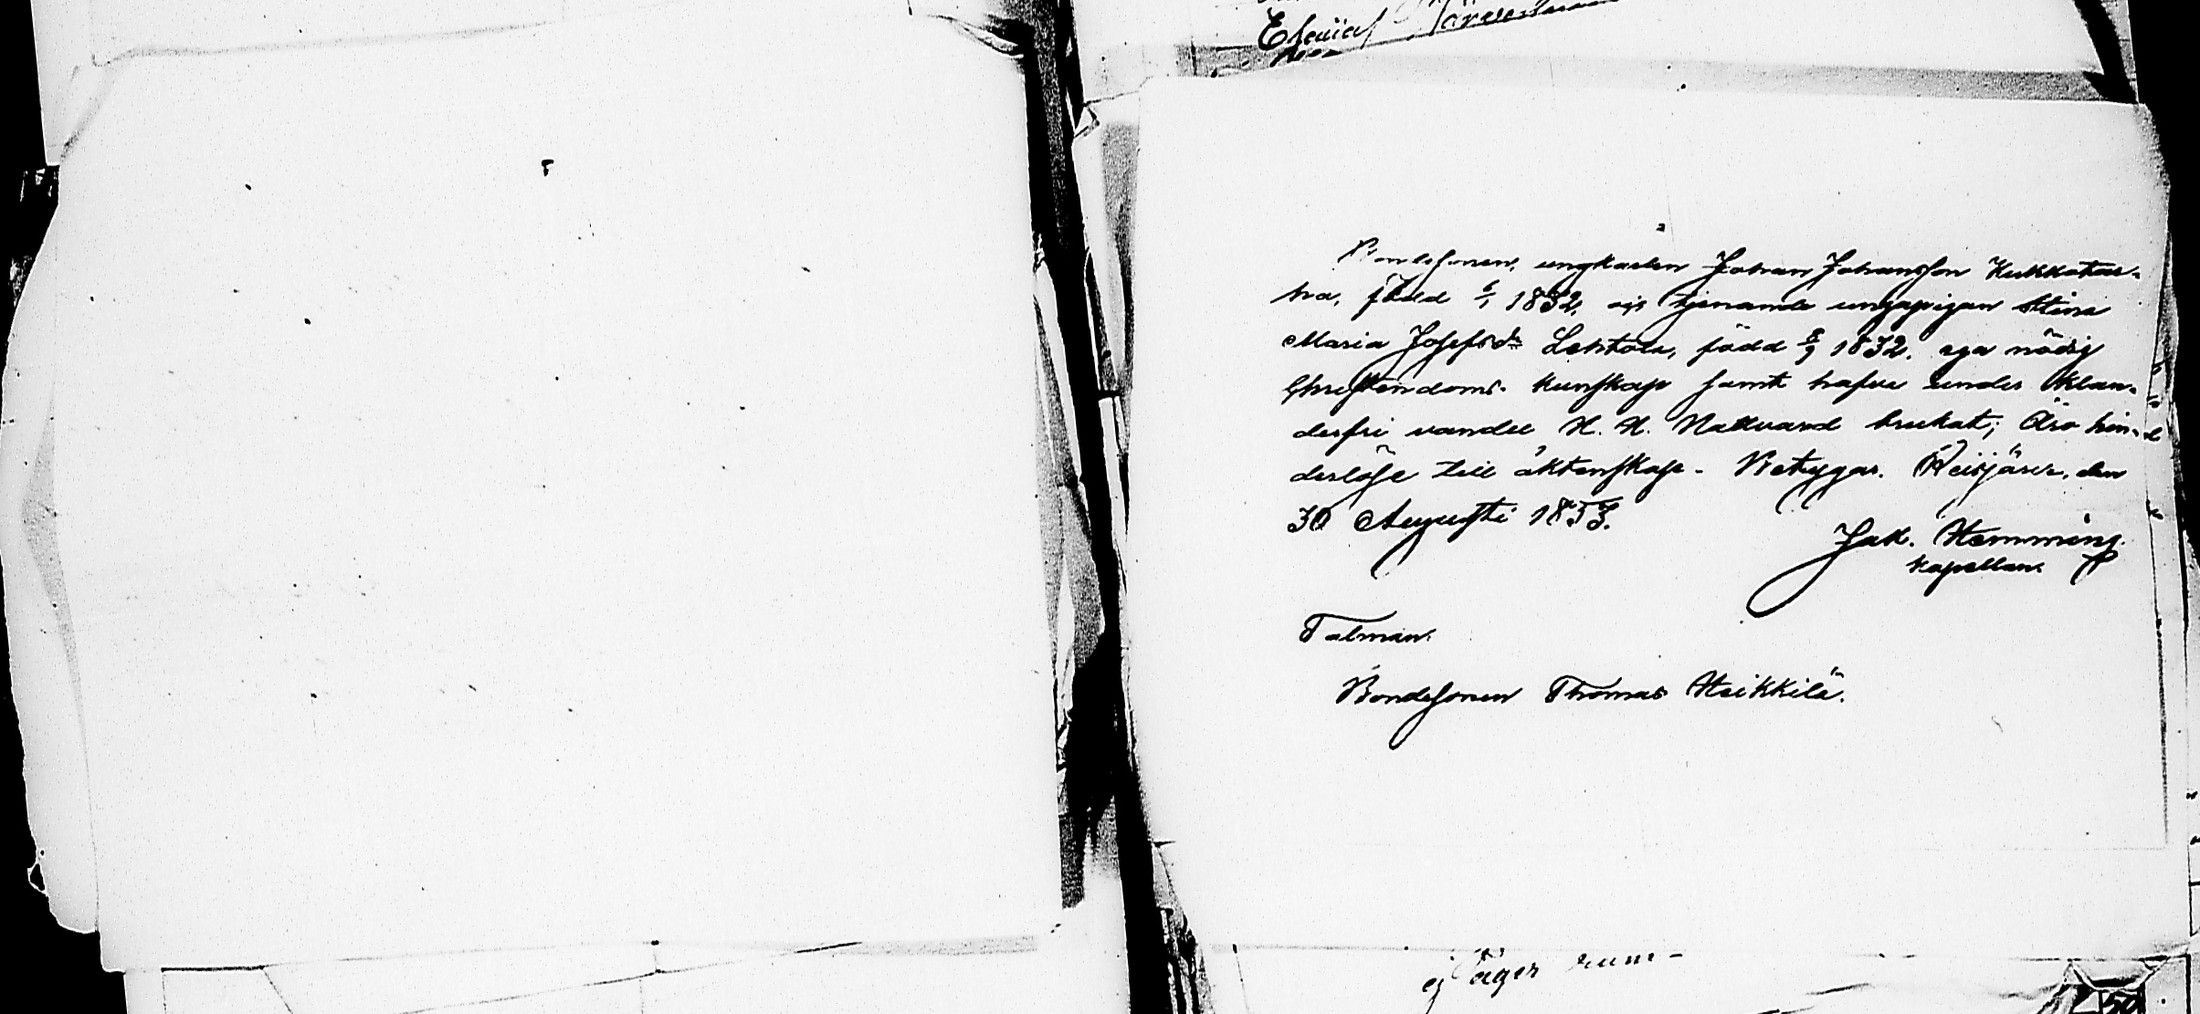 Esaias
Bondesonen, ungkarlen Johan Johansson Kukkotar-
ha, född 6/1 1832, och tjenande ungapigan Stina
Maria Josefsdr Lehtola, född 8/9 1832, ega nödig
Christendoms-kunskap samt hafva under klan-
derfri vandel H. H. Nattvard brukat; Äro hin-
derlöse till äktenskap. Betygar. Reisjärvi, den
30 Augusti 1853.
Jak. Hemming.
Kapellan.
Talman.
Bondesonen Thomas Heikkilä.
ej äger rum-